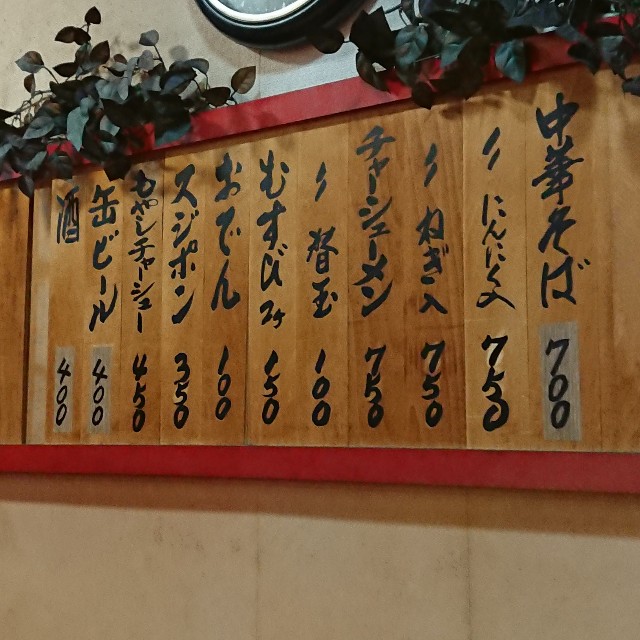 中華そば 700
〃 にんにく入 750
〃 ねぎ入 750
チャーシューメン 750
〃 替玉 100
むすび2ケ 150
おでん 100
スジポン 350
もやしチャーシュー 450
缶ビール 400
酒 400